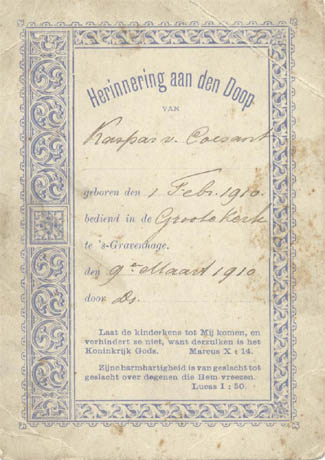 Herinnering aan den Doop
VAN
Kaspar v. Coesant
geboren den 1 Febr. 1910.
bediend in de Groote Kerk
te 's-Gravenhage.
den 9en Maart 1910
door Ds.
Laat de kinderkens tot Mij komen, en
verhindert ze niet, want derzulken is het
Koninkrijk Gods. Marcus X : 14.
Zijne barmhartigheid is van geslacht tot
geslacht over degenen die Hem vreezen.
Lucas I : 50.